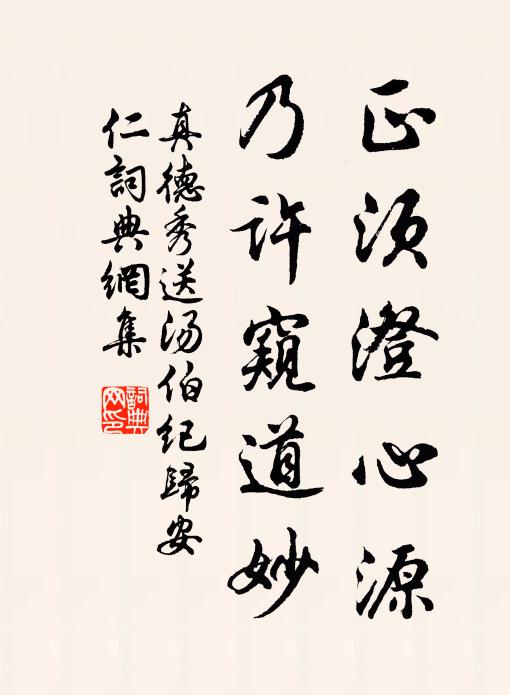 正须澄心源
乃许窥道妙
真德秀送汤伯纪归安
仁词典網集
詞典
网印